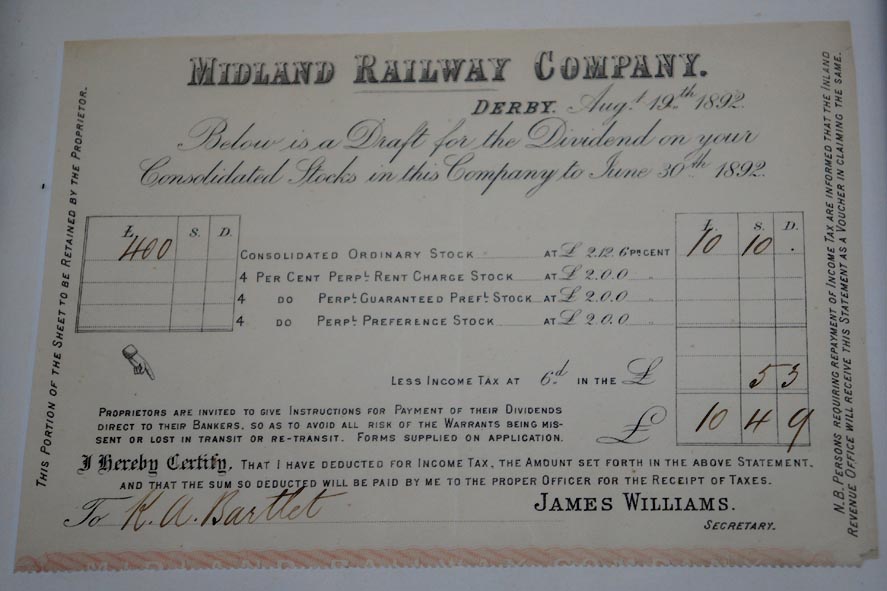 MIDLAND RAILWAY COMPANY.
DERBY. Augt. 19th 1892.
Below is a Draft for the Dividend on your
Consolidated Stocks in this Company to June 30th 1892.
£. S. D. £. S. D.
400 CONSOLIDATED ORDINARY STOCK AT £ 2.12.6 PR CENT 10 10 .
4 PER CENT PERPL. RENT CHARGE STOCK AT £ 2.0.0 "
4 DO PERPL. GUARANTEED PREFL. STOCK AT £ 2.0.0 "
4 DO PERPL. PREFERENCE STOCK AT £ 2.0.0 "
LESS INCOME TAX AT 6d. IN THE £ 5 3
£ 10 4 9
PROPRIETORS ARE INVITED TO GIVE INSTRUCTIONS FOR PAYMENT OF THEIR DIVIDENDS
DIRECT TO THEIR BANKERS, SO AS TO AVOID ALL RISK OF THE WARRANTS BEING MIS-
SENT OR LOST IN TRANSIT OR RE-TRANSIT. FORMS SUPPLIED ON APPLICATION.
I Hereby Certify, THAT I HAVE DEDUCTED FOR INCOME TAX, THE AMOUNT SET FORTH IN THE ABOVE STATEMENT,
AND THAT THE SUM SO DEDUCTED WILL BE PAID BY ME TO THE PROPER OFFICER FOR THE RECEIPT OF TAXES.
To K. A. Bartlet JAMES WILLIAMS.
SECRETARY.
THIS PORTION OF THE SHEET TO BE RETAINED BY THE PROPRIETOR.
N.B. PERSONS REQUIRING REPAYMENT OF INCOME TAX ARE INFORMED THAT THE INLAND
REVENUE OFFICE WILL RECEIVE THIS STATEMENT AS A VOUCHER IN CLAIMING THE SAME.